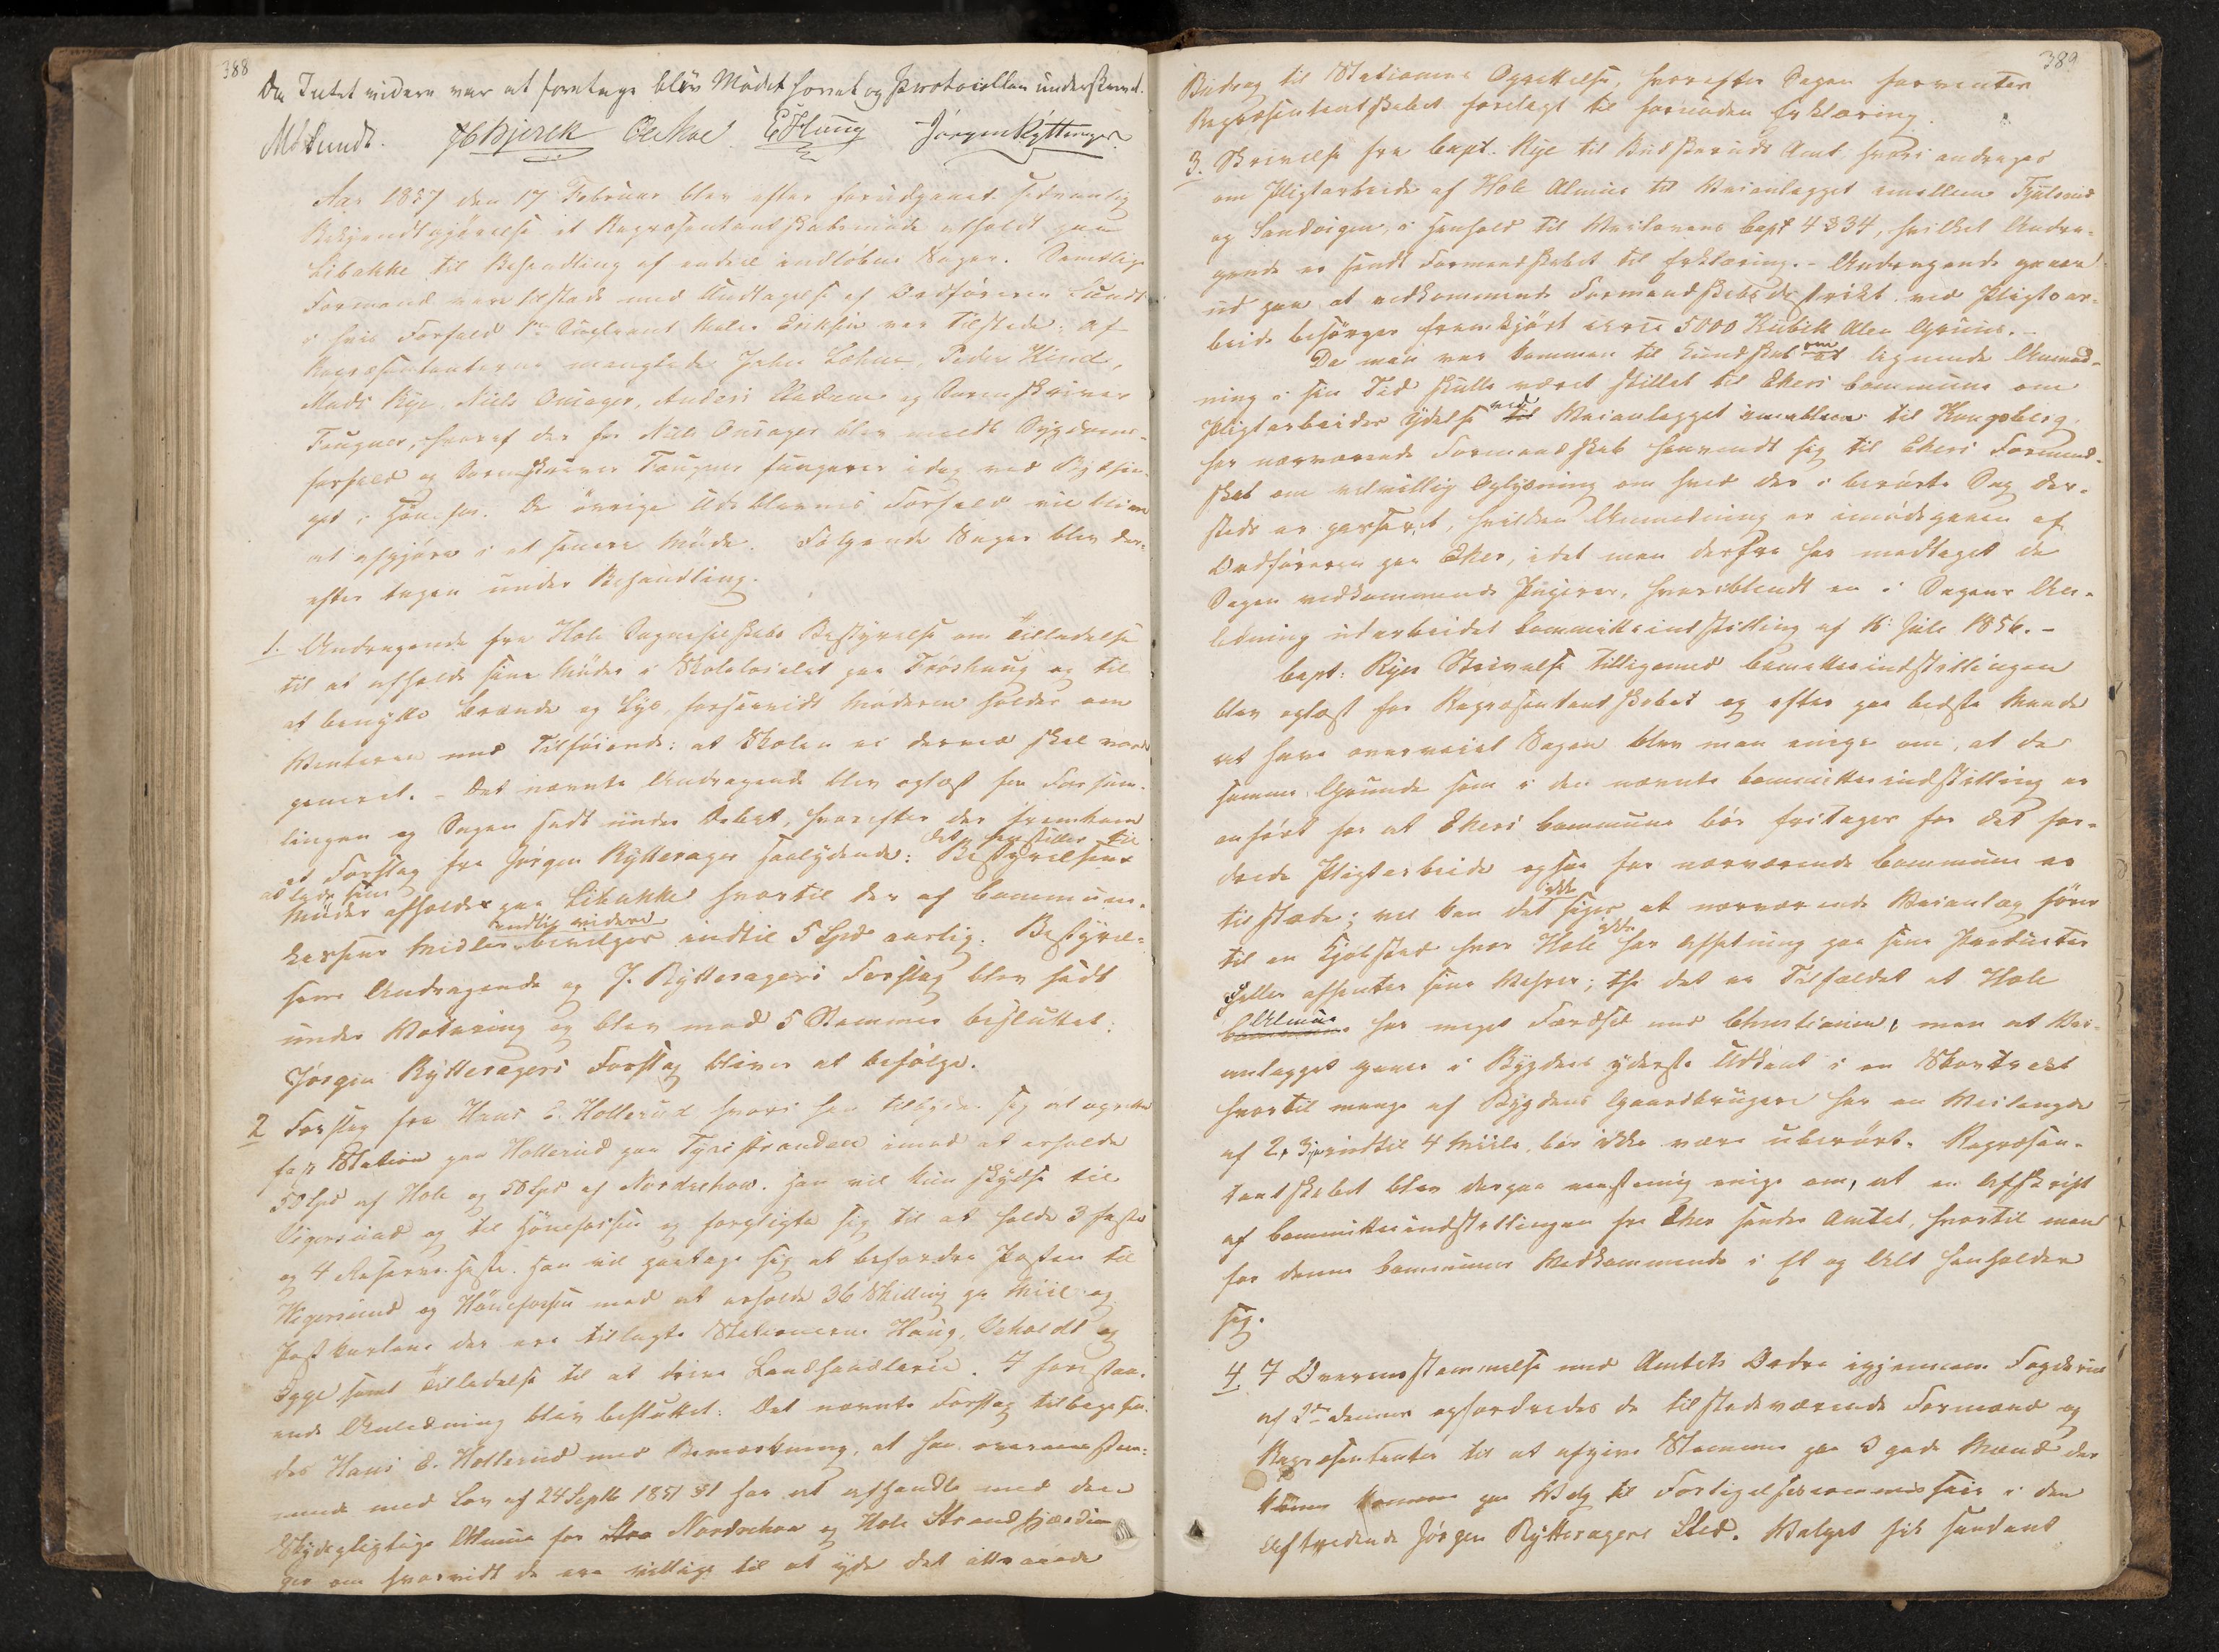 388
Da Intet videre var at foretage blev Mødet hævet og Protocollen underskrevet.
M Sundt. H Bjerck Ole Moe E Haug Jørgen Rytterager.
Aar 1857 den 17 Februar blev efter forudgaaet sædvanlig
Bekjendtgjørelse et Repræsentantskabsmøde afholdt paa
Libakke til Behandling af endeel indløbne Sager. Samtlige
Formænd vare tilstede med Undtagelse af Ordføreren Sundt
i hvis Forfald Suppleant Eriksen var tilstede; af
Repræsentanterne manglede Lohne, Peder Hiord,
Mads Rye, Niels Onsager, Anders og Sorenskriver
Fougner, hvoraf der for Niels Onsager blev meldt Sygdoms-
forfald og Sorenskriver Fougner fungerer idag ved Bythin-
get i Hønefos. De øvrige Udeblevnes Forfald vil blive
at afgjøre i et senere Møde. Følgende Sager blev der-
efter tagen under Behandling.
1. Andragende fra Hole Sogneselskabs Bestyrelse om Tilladelse
til at afholde sine Møder i Skolelocalet paa Trøshaug og til
at benytte Brænde og Lys, forsaavidt Møderne holdes om
Vinteren med Tilføiende: at Skolen ei derved skal være
generet. – Det nævnte Andragende blev oplæst for Forsam-
lingen og Sagen sadt under Debat, hvorefter der fremkom
et Forslag fra Jørgen Rytterager saalydende: Bestyrelsens
det henstilles til
at lade sine
Møder afholdes paa Libakke hvortil der af Commune-
kassens Midler bevilges indtil 5 Spd aarlig. Bestyrel-
indtil videre
sens Andragende og J. Rytteragers Forslag blev sadt
under Votering og blev med 5 Stemmer besluttet:
Jørgen Rytteragers Forslag bliver at befølge.
2 Forslag fra Hans E. Hollerud hvori han tilbyder sig at oprette
fast Station paa Hollerud paa Tyristranden imod at erholde
50 Spd af Hole og 50 Spd af Norderhov. Han vil kun skydse til
Vigersund og til Hønefossen og forpligte sig til at holde 3 faste
og 4 Reserve Heste. Han vil paatage sig at befordre Posten til
Vigersund og Hønefossen mod at erholde 36 Skilling pr Miil og
der ere tillagte Stationerne Haug, Veholdt og
samt Tilladelse til at drive Landhandlerie. I forestaa-
ende Anledning blev besluttet: Det nævnte Forslag tilbagesen-
des Hans E. Hollerud med Bemærkning, at han overensstem-
mende med Lov af 24 Septb 1851 §1 har at afhandle med den
Skydspligtige Almue for Norderhov og Hole Strandfjerdin-
ger om hvorvidt de ere villige til at yde det attraaede
389
Bidrag til Stationens Oprettelse, hvorefter Sagen forventes
Repræsentantskabet forelagt til fornøden Erklæring.
3. Skrivelse fra Capt. Rye til Buskeruds Amt, hvori andrages
om Pligtarbeide af Hole Almue til Veianlægget imellem Fjulsrud
og Sandvigen, i Henhold til Veilovens Capt 4 § 34, hvilket Andra-
gende er sendt Formandskabet til Erklæring. – Andragende gaaer
ud paa at vedkommende Formandskabsdistrikt ved Pligtar-
beide besørger fremkjørt circa 5000 Kubik Alen Gruus. –
Da man var kommen til Kundskab om at lignende Anmod-
ning i sin Tid skulle været stillet til Ekers Commune om
Pligtarbeides Ydelse til Veianlægget imellem til Kongsberg,
ved
har nærværende Formandskab henvendt sig til Ekers Formand-
skab om velvillig Oplysning om hvad der i berørte Sag der-
steds er passeret, hvilken Anmodning er imødegaaen af
Ordføreren paa Eker, idet man derfra har modtaget de
Sagen vedkommende Papirer, hvoriblandt en i Sagens An-
ledning udarbeidet Committeeindstilling af 16 Juli 1856. –
Capt: Ryes Skrivelse tilligemed Committeeindstillingen
blev oplæst for Repræsentantskabet og efter paa bedste Maade
at have overveiet Sagen blev man enige om, at de
samme Grunde som i den nævnte Committeeindstilling er
anført for at Ekers Commune bør fritages for det for-
drede Pligtarbeide ogsaa for nærværende Commune er
tilstede; vel kan det ikke siges at nærværende Veianlæg fører
til en Kjøbstad hvor Hole ikke har Afsætning paa sine Producter
heller afhenter sine Vahrer; thi det er Tilfældet at Hole
Almue har meget Færdsel med Christiania, men at Vei-
anlægget gaaer i Bygdens yderste Udkant i en Skovtrakt
hvortil mange af Bygdens Gaardbrugere har en Veilængde
af 2, 3, indtil 4 Miile, bør ikke være uberørt. Repræsen-
tantskabet blev derpaa eenstemig enige om, at en Afskrift
af Committeeindstillingen fra Eker sendes Amtet, hvortil man
for denne Communes Vedkommende i Et og Alt henholder
sig.
4 I Overensstemmelse med Amtets Ordre igjennem Fogderiet
af 2den dennes opfordredes de tilstedeværende Formænd og
Repræsentanter til at afgive Stemme paa 3 gode Mænd der
kunne komme paa Valg til Forligelsescommissair i den
Aftrædende Jørgen Rytteragers Sted. Valget fik saadant